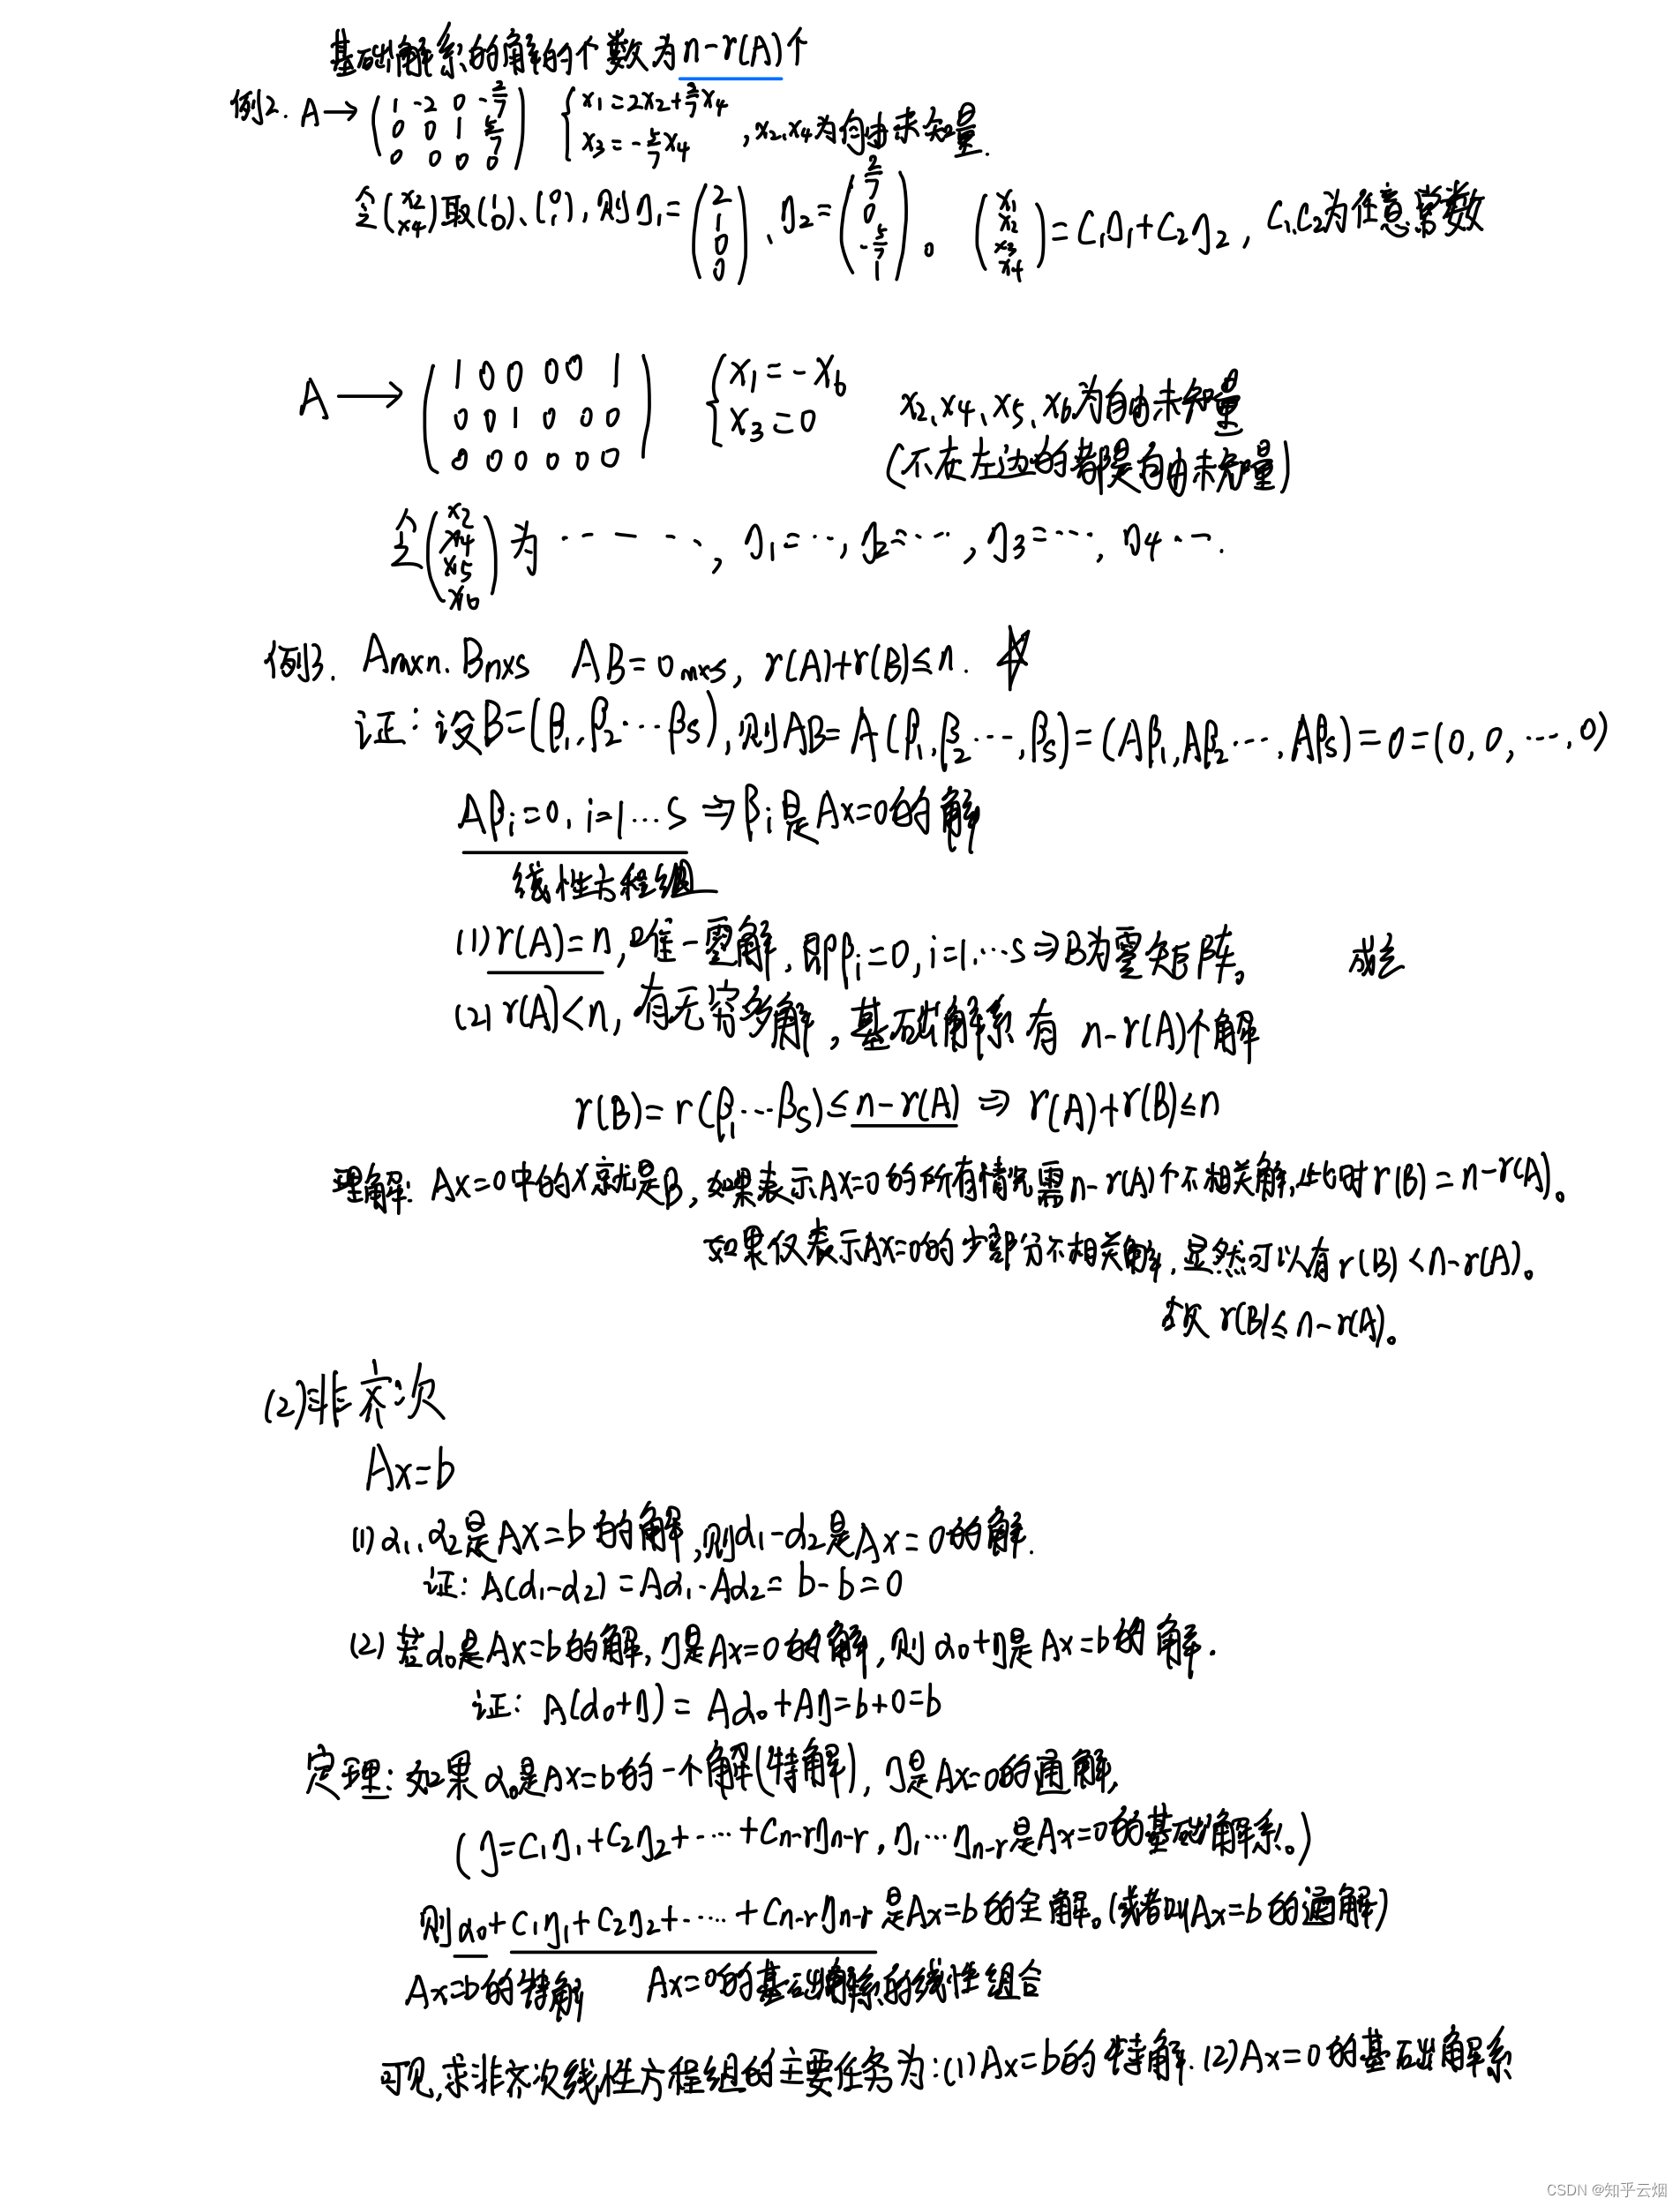 基础解系的解的个数为n-r(A)个
例2. A→(1 -2 0 -2/7; 0 0 1 5/7; 0 0 0 0) {x₁=2x₂+2/7x₄; x₃=-5/7x₄ , x₂、x₄为自由未知量.
令(x₂; x₄)取(1; 0)、(0; 1), 则η₁=(2; 1; 0; 0)、η₂=(2/7; 0; -5/7; 1)。 (x₁; x₂; x₃; x₄)=C₁η₁+C₂η₂, C₁、C₂为任意常数
A→(1 0 0 0 0 1; 0 0 1 0 0 0; 0 0 0 0 0 0) {x₁=-x₆; x₃=0 x₂、x₄、x₅、x₆为自由未知量
(不在左边的都是自由未知量)
令(x₂; x₄; x₅; x₆)为……, η₁=…, η₂=…, η₃=…, η₄….
例3. Aₘₓₙ. Bₙₓₛ AB=0ₘₓₛ, r(A)+r(B)≤n. ☆
证: 设B=(β₁,β₂…βₛ), 则AB=A(β₁,β₂…,βₛ)=(Aβ₁,Aβ₂…,Aβₛ)=0=(0,0,…,0)
Aβᵢ=0, i=1…s ⇒βᵢ是Ax=0的解
线性方程组
(1)r(A)=n, 唯一零解, 即βᵢ=0, i=1…s⇒B为零矩阵。 成立
(2)r(A)<n, 有无穷多解, 基础解系有n-r(A)个解
r(B)=r(β₁…βₛ)≤n-r(A) ⇒ r(A)+r(B)≤n
理解: Ax=0中的x就是B, 如果表示Ax=0的所有情况需n-r(A)个不相关解, 此时r(B)=n-r(A)。
如果仅表示Ax=0的少部分不相关解, 显然可以有r(B)<n-r(A)。
故r(B)≤n-r(A)。
(2)非齐次
Ax=b
(1)α₁、α₂是Ax=b的解, 则α₁-α₂是Ax=0的解.
证: A(α₁-α₂)=Aα₁-Aα₂=b-b=0
(2)若α₀是Ax=b的解, η是Ax=0的解, 则α₀+η是Ax=b的解.
证: A(α₀+η)=Aα₀+Aη=b+0=b
定理: 如果α₀是Ax=b的一个解(特解), η是Ax=0的通解,
(η=C₁η₁+C₂η₂+……+Cₙ₋ᵣηₙ₋ᵣ, η₁…ηₙ₋ᵣ是Ax=0的基础解系。)
则α₀+C₁η₁+C₂η₂+……+Cₙ₋ᵣηₙ₋ᵣ是Ax=b的全解。(或者叫Ax=b的通解)
Ax=b的特解 Ax=0的基础解系的线性组合
可见,求非齐次线性方程组的主要任务为:(1)Ax=b的特解.(2)Ax=0的基础解系
CSDN @知乎云烟